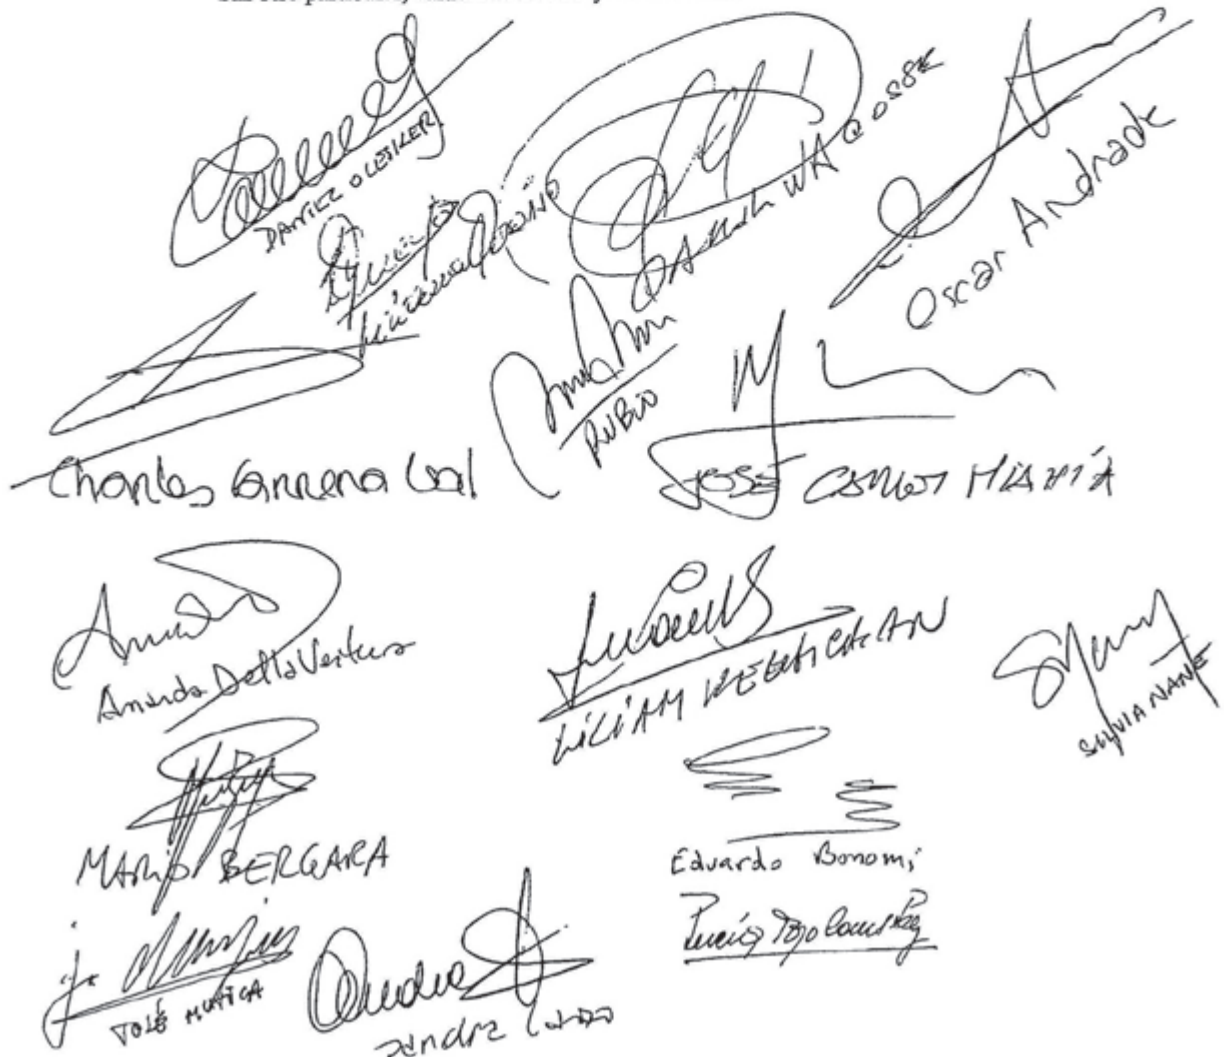 DANIEL OLESKER
Oscar Andrade
RUBIO
Charles Carrera Leal
JOSÉ CARLOS MAHÍA
Amanda Della Ventura
LILIAM KECHICHIAN
SILVIA NANE
MARIO BERGARA
Eduardo Bonomi
Lucía Topolansky
JOSÉ MUJICA
Sandra Lazo